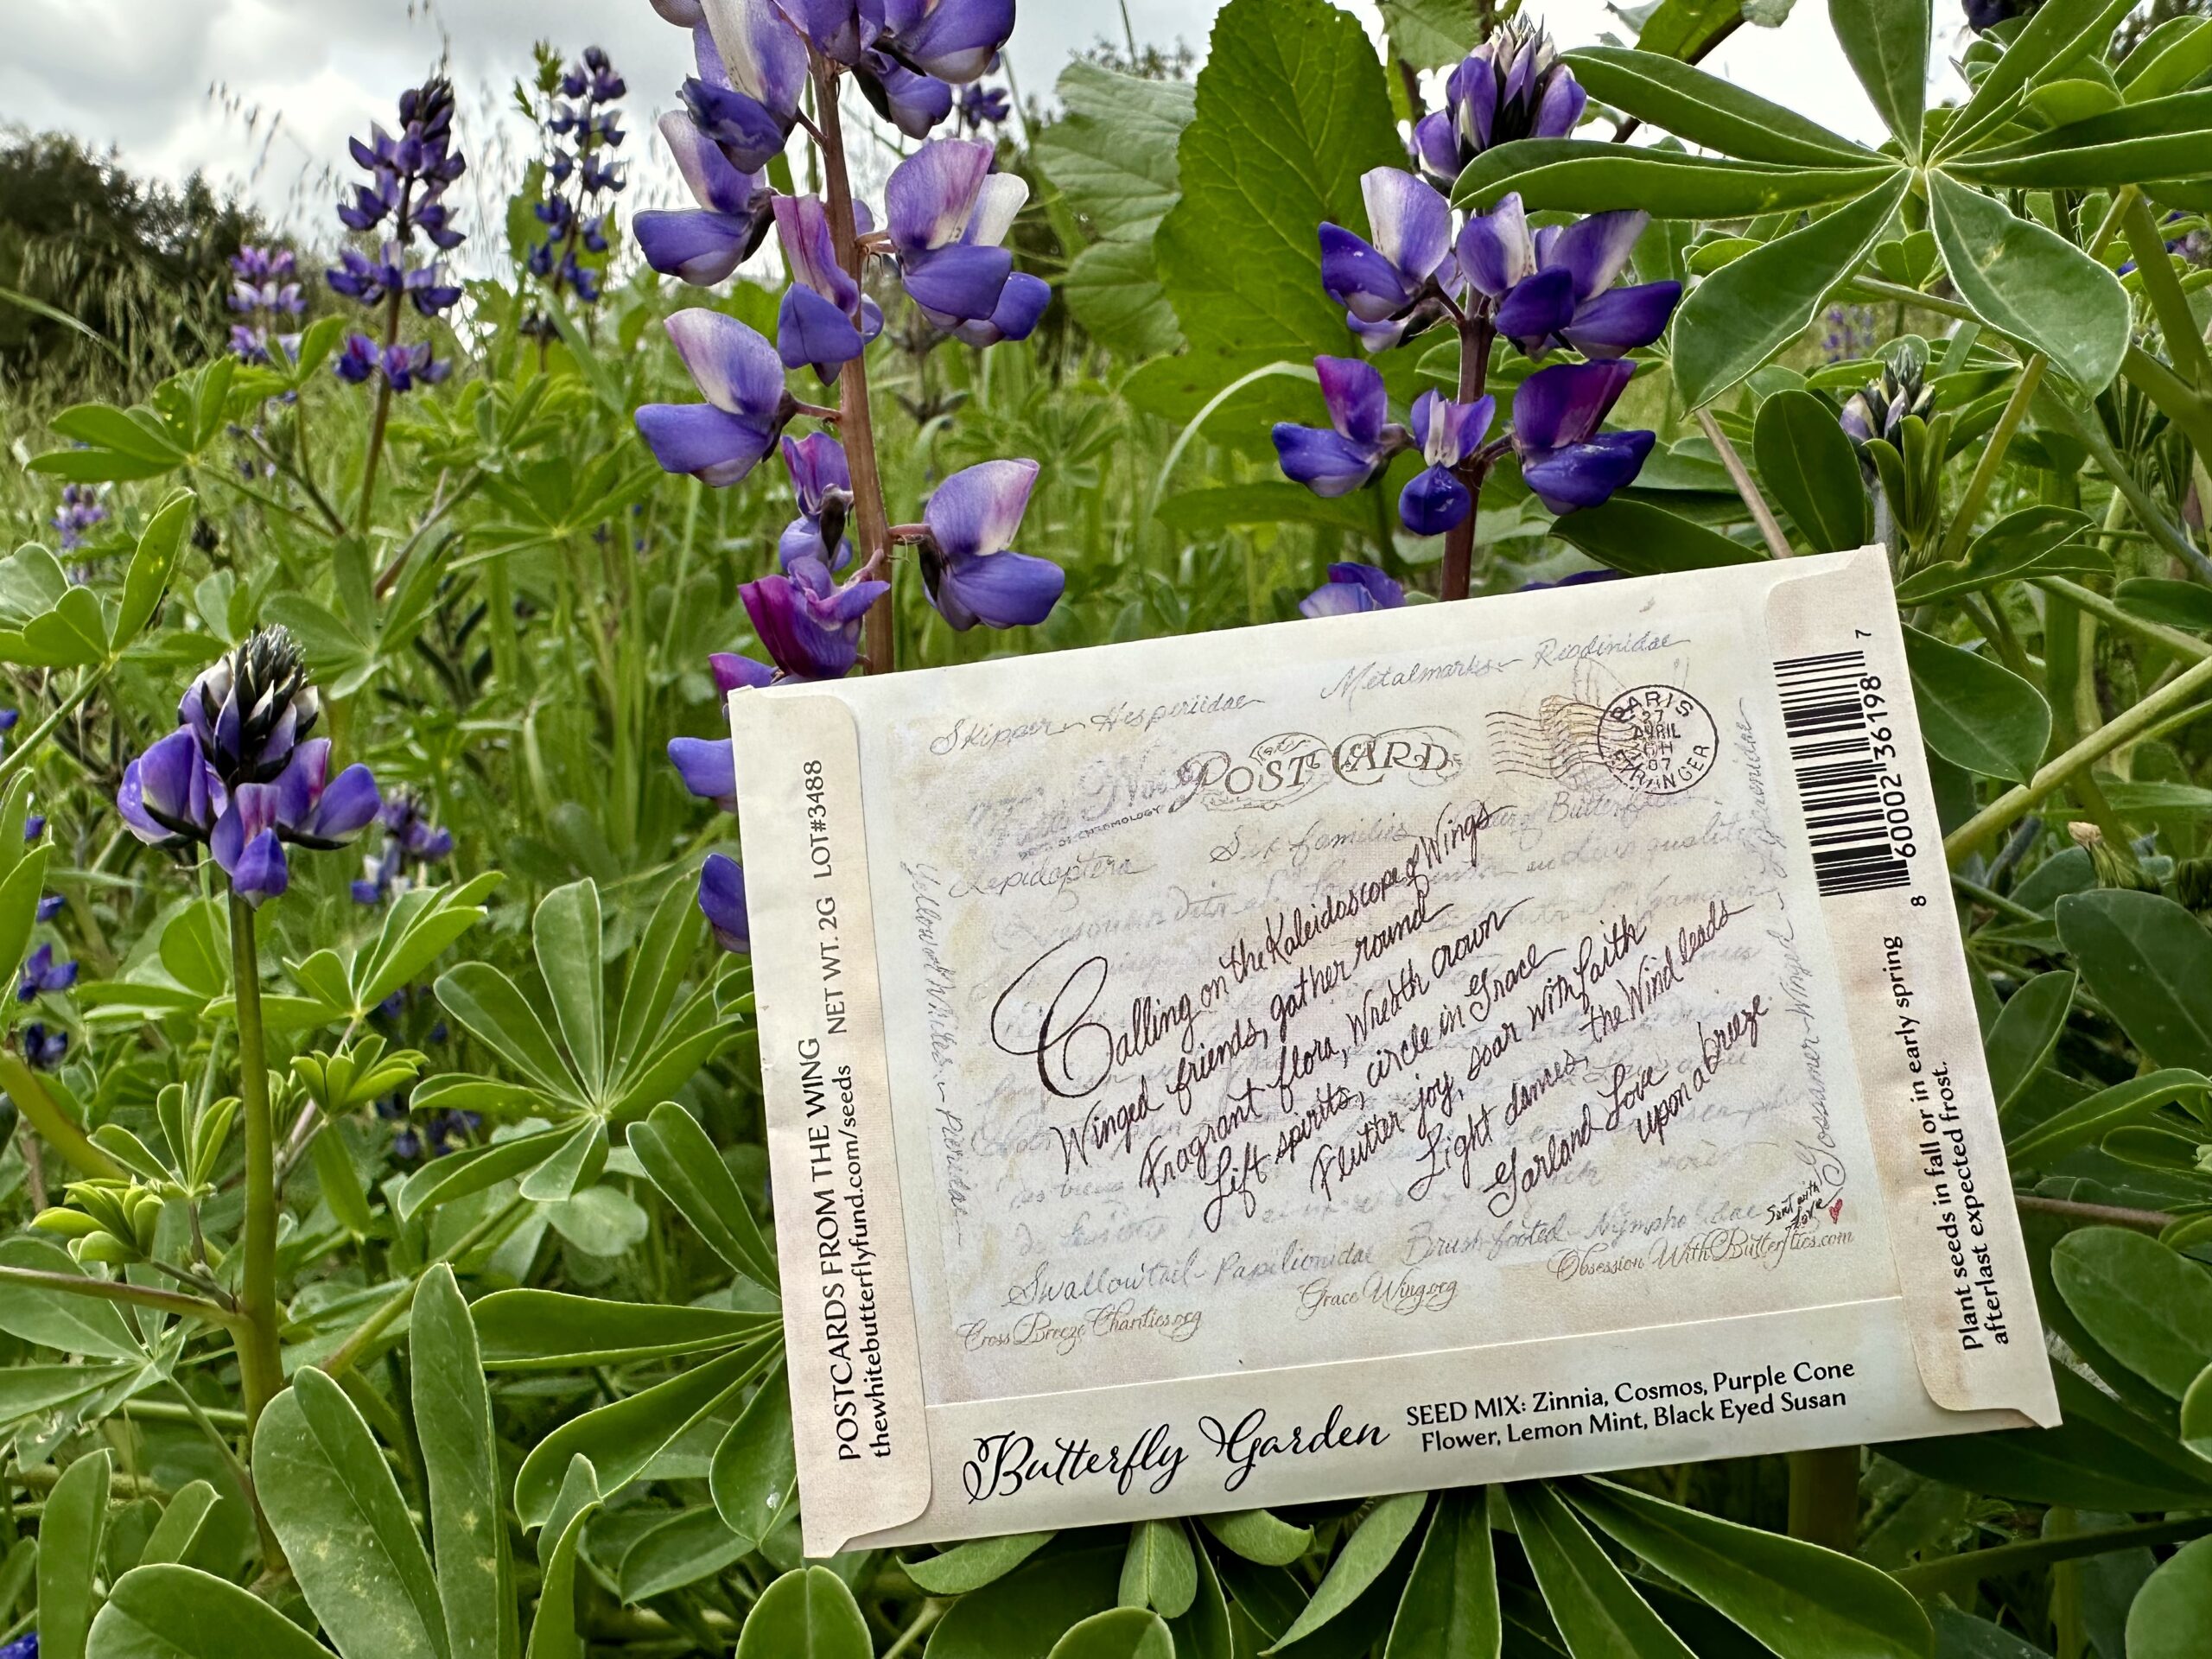 Skipper - Hesperiidae
Metalmarks - Riodinidae
POST CARD
PARIS
27
AVRIL
07
ETRANGER
Lepidoptera
Six families
Butterflies
Calling on the Kaleidoscope of Wings
Winged friends, gather round
Fragrant flora, Wreath crown
Lift spirits, circle in Grace
Flutter joy, soar with faith
Light dances, the Wind leads
Garland Love
upon a breeze.
Sent with
Love
Yellow & Whites - Pieridae
Gossamer-Winged - Lycaenidae
Swallowtail - Papilionidae
Brush-footed - Nymphalidae
CrossBreezeCharities.org
GraceWing.org
ObsessionWithButterflies.com
Butterfly Garden
SEED MIX: Zinnia, Cosmos, Purple Cone
Flower, Lemon Mint, Black Eyed Susan
POSTCARDS FROM THE WING
thewhitebutterflyfund.com/seeds NET WT. 2G LOT#3488
8 60002 36198 7
Plant seeds in fall or in early spring
after last expected frost.